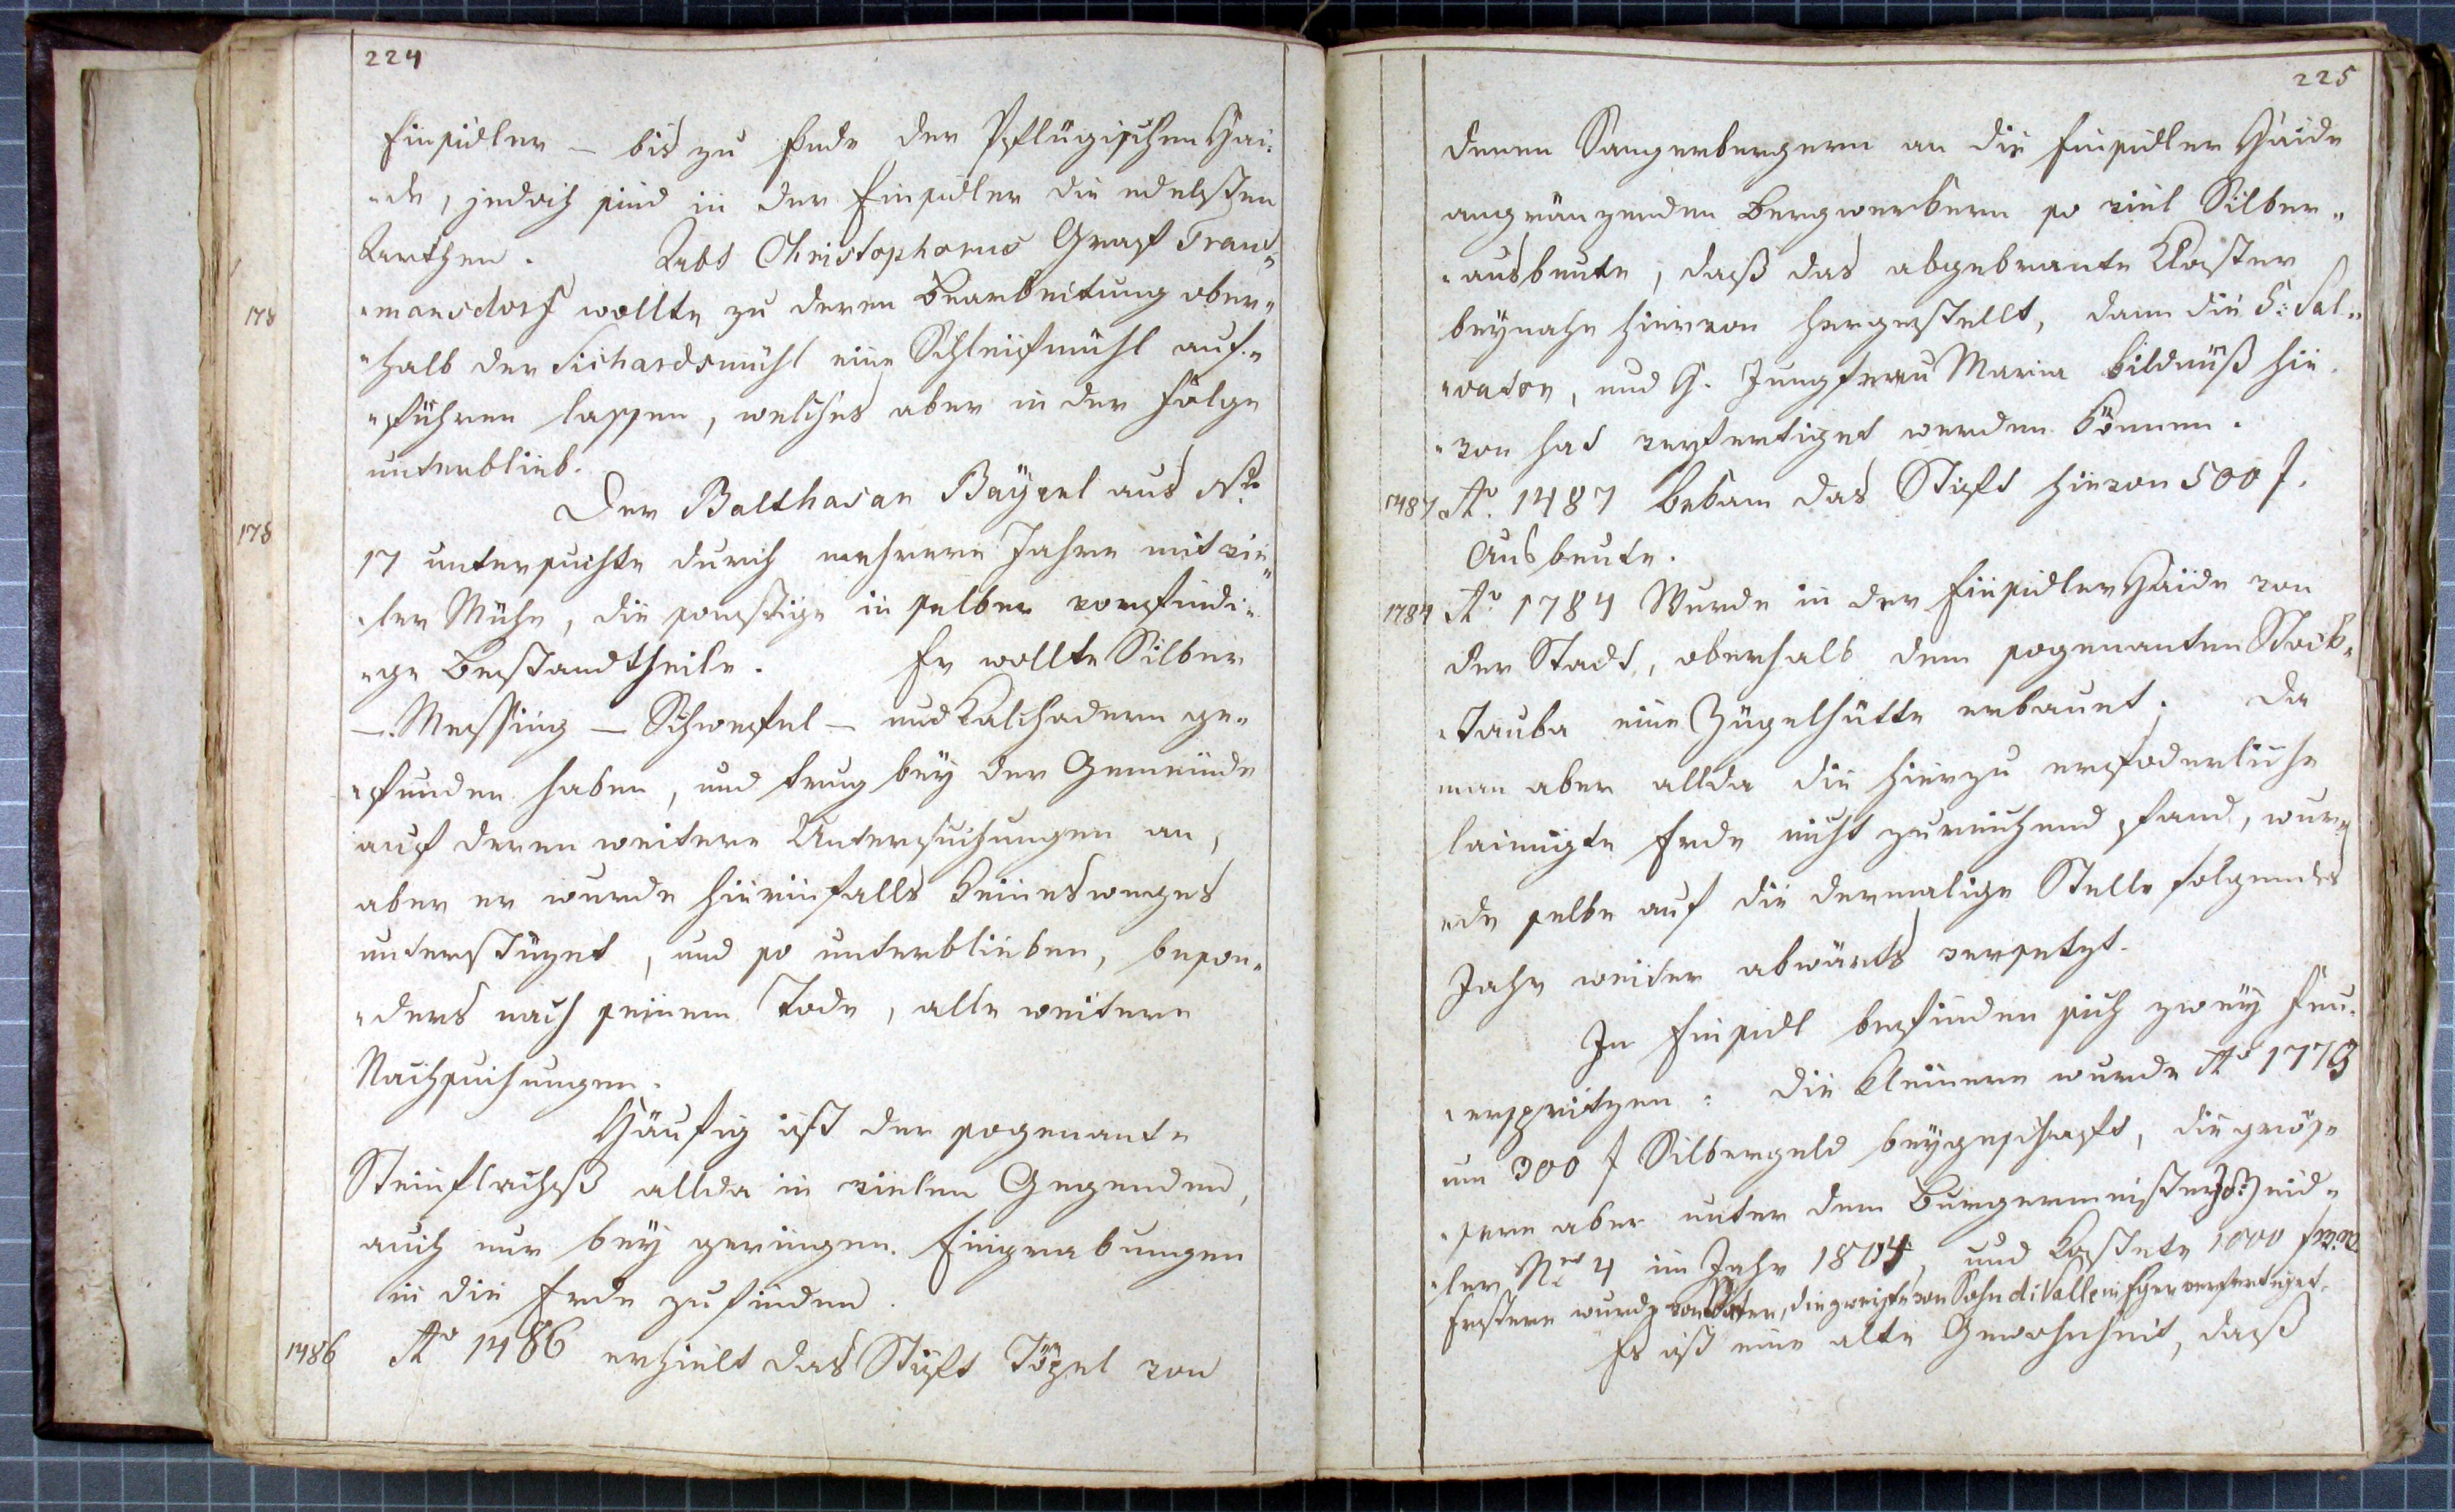 224
Einsidler – bis zu Ende der Pflügischen Hai„
„de, jedoch sind in der Einsidler die edelsten
Aerthen. Abt Christophorus Graf Traut„
178
„mansdorf wollte zu deren Bearbeitung ober„
„halb der Sichardsmühl eine Schleifmühl auf„
„führen lassen, welches aber in der Folge
unterblieb.
Der Balthasar Bäyerl aus Nro
178
17 untersuchte durch mehrere Jahre mit vie„
„ler Mühe, die sonstige in selber vorfindi„
„ge Bestandtheile. Er wollte Silber
– Messing – Schwefel – und Kalchadern ge„
„funden haben, und trug bey der Gemeinde
auf deren weitere Untersuchungen an,
aber er wurde hierinfalls keineswegs
unterstüzet, und so unterblieben, beson„
„ders nach seinem Tode, alle weitere
Nachsuchungen.
Häufig ist der sogenante
Steinflachß allda in vielen Gegenden,
auch nur bey geringen Eingrabungen
in die Erde zufinden.
1486 Ao 1486 erhielt das Stift Töpel von
225
denen Sangerbergern an die Einsidler Haide
angränzenden Bergwerkern so viel Silber„
„ausbeute, daß das abgebrante Kloster
beynahe hiervon hergestellt, dann die S: Sal„
„vator, und H. Jungfrau Maria Bildnüß hie„
„von hat verfertiget werden können.
1487 Ao. 1487 bekam das Stift hievon 500 f.
Ausbeute.
1784 Ao 1784 Wurde in der Einsidler Haide von
der Stadt, oberhalb dem sogenanten Stock„
„Tauba eine Zügelhütte erbauet. Da
man aber allda die hierzu erfoderliche
laimigte Erde nicht zureichend fand, wur„
„de selbe auf die dermalige Stelle folgendes
Jahr weiter abwärts versetzt.
In Einsidl befinden sich zwey Feu„
„erspritzen: die kleinere wurde Ao 1773
um 300 f Silbergeld beygeschaft, die grös„
„sere aber unter dem Burgermeister Zeid„
„ler Nro 4 im Jahr 1804, und kostete 1000 f W. W.
Erstere wurde von Vater, die zweite von Sohn di Valle in Eger verfertiget.
Es ist eine alte Gewohnheit, daß